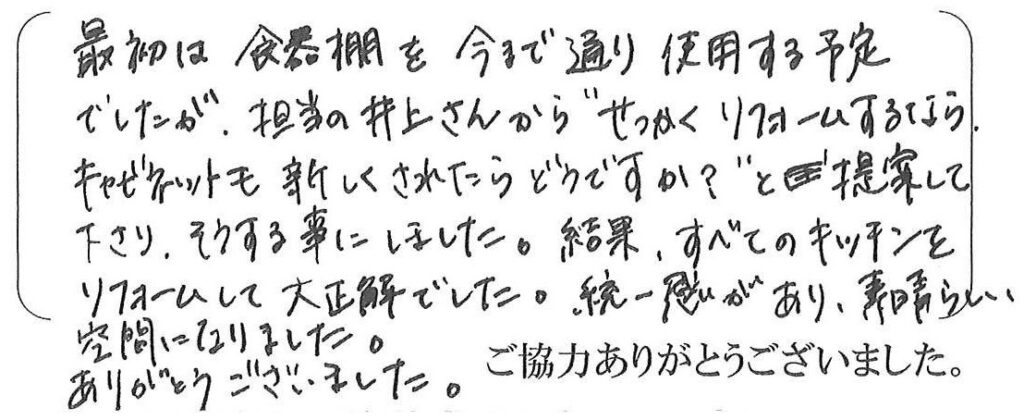 最初は食器棚を今まで通り使用する予定
でしたが、担当の井上さんから"せっかくリフォームするなら、
キャビネットも新しくされたらどうですか?"と提案して
下さり、そうする事にしました。結果、すべてのキッチンを
リフォームして大正解でした。統一感があり、素晴らしい
空間になりました。
ありがとうございました。
ご協力ありがとうございました。